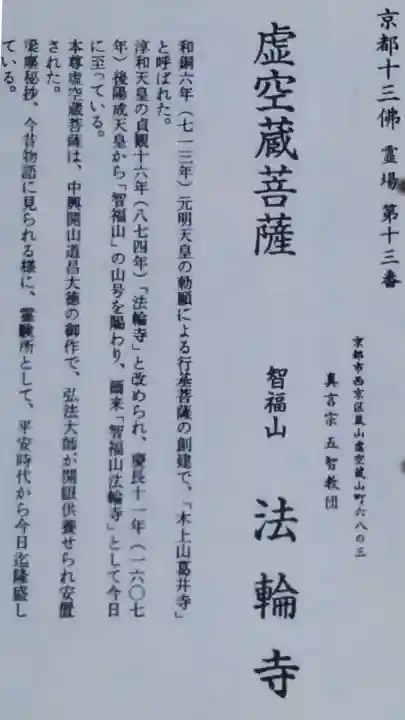 京都十三佛霊場第十三番
虚空蔵菩薩
京都市西京区嵐山虚空蔵山町六八の三
真言宗五智教団
智福山 法輪寺
和銅六年（七一三年）元明天皇の勅願による行基菩薩の創建で、「木上山葛井寺」
と呼ばれた。
淳和天皇の貞観十六年（八七四年）「法輪寺」と改められ、慶長十一年（一六〇七
年）後陽成天皇から「智福山」の山号を賜わり、爾来「智福山法輪寺」として今日
に至っている。
本尊虚空蔵菩薩は、中興開山道昌大徳の御作で、弘法大師が開眼供養せられ安置
された。
梁塵秘抄、今昔物語に見られる様に、霊験所として、平安時代から今日迄隆盛し
ている。